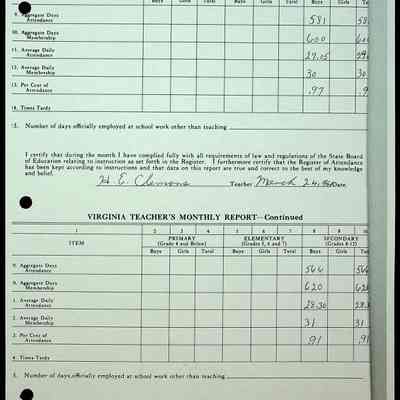 Boys Girls Total Boys Girls Total Boys Girls
9. Aggregate Days Attendance 581 58
10. Aggregate Days Membership 600 600
11. Average Daily Attendance 29.05
12. Average Daily Membership 30 30
13. Per Cent of Attendance .97 .9
14. Times Tardy
15. Number of days officially employed at school work other than teaching
I certify that during the month I have complied fully with all requirements of law and regulations of the State Board
of Education relating to instruction as set forth in the Register. I furthermore certify that the Register of Attendance
has been kept according to instructions and that data on this report are true and correct to the best of my knowledge
and belief.
H. E. Clemons Teacher March 24, Date.
VIRGINIA TEACHER'S MONTHLY REPORT—Continued
1 2 3 4 5 6 7 8 9 10
ITEM PRIMARY (Grade 4 and Below) ELEMENTARY (Grades 5, 6 and 7) SECONDARY (Grades 8-12)
Boys Girls Total Boys Girls Total Boys Girls
9. Aggregate Days Attendance 566 566
0. Aggregate Days Membership 620 620
1. Average Daily Attendance 28.30 28.3
2. Average Daily Membership 31 31
3. Per Cent of Attendance .91 .91
4. Times Tardy
5. Number of days officially employed at school work other than teaching